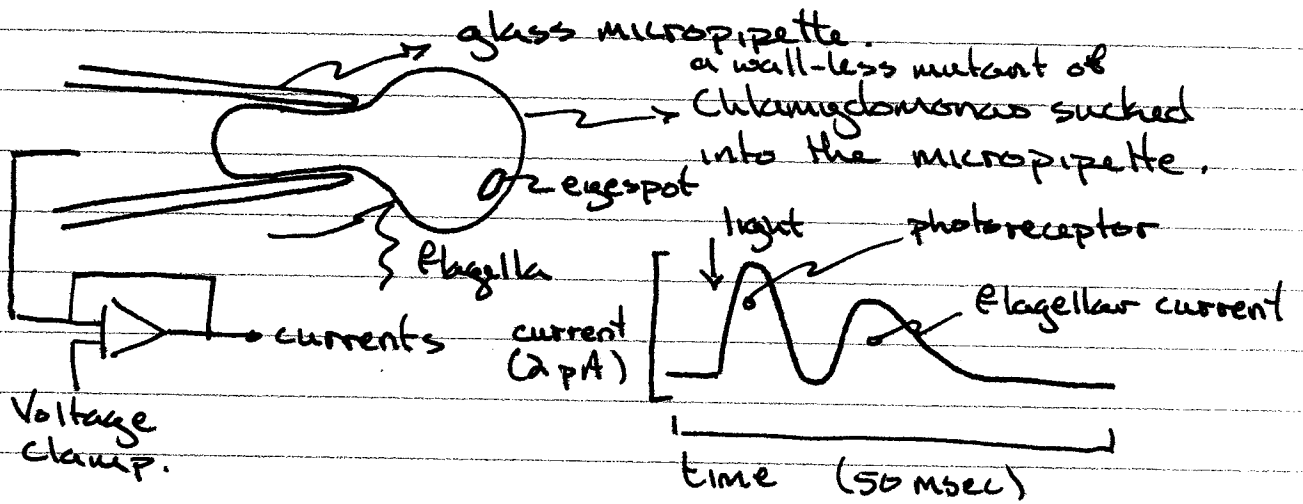 glass micropipette.
a wall-less mutant of
Chlamydomonas sucked
into the micropipette.
eyespot
flagella
light
photoreceptor
flagellar current
currents
current
(2 pA)
Voltage
clamp.
time (50 msec)